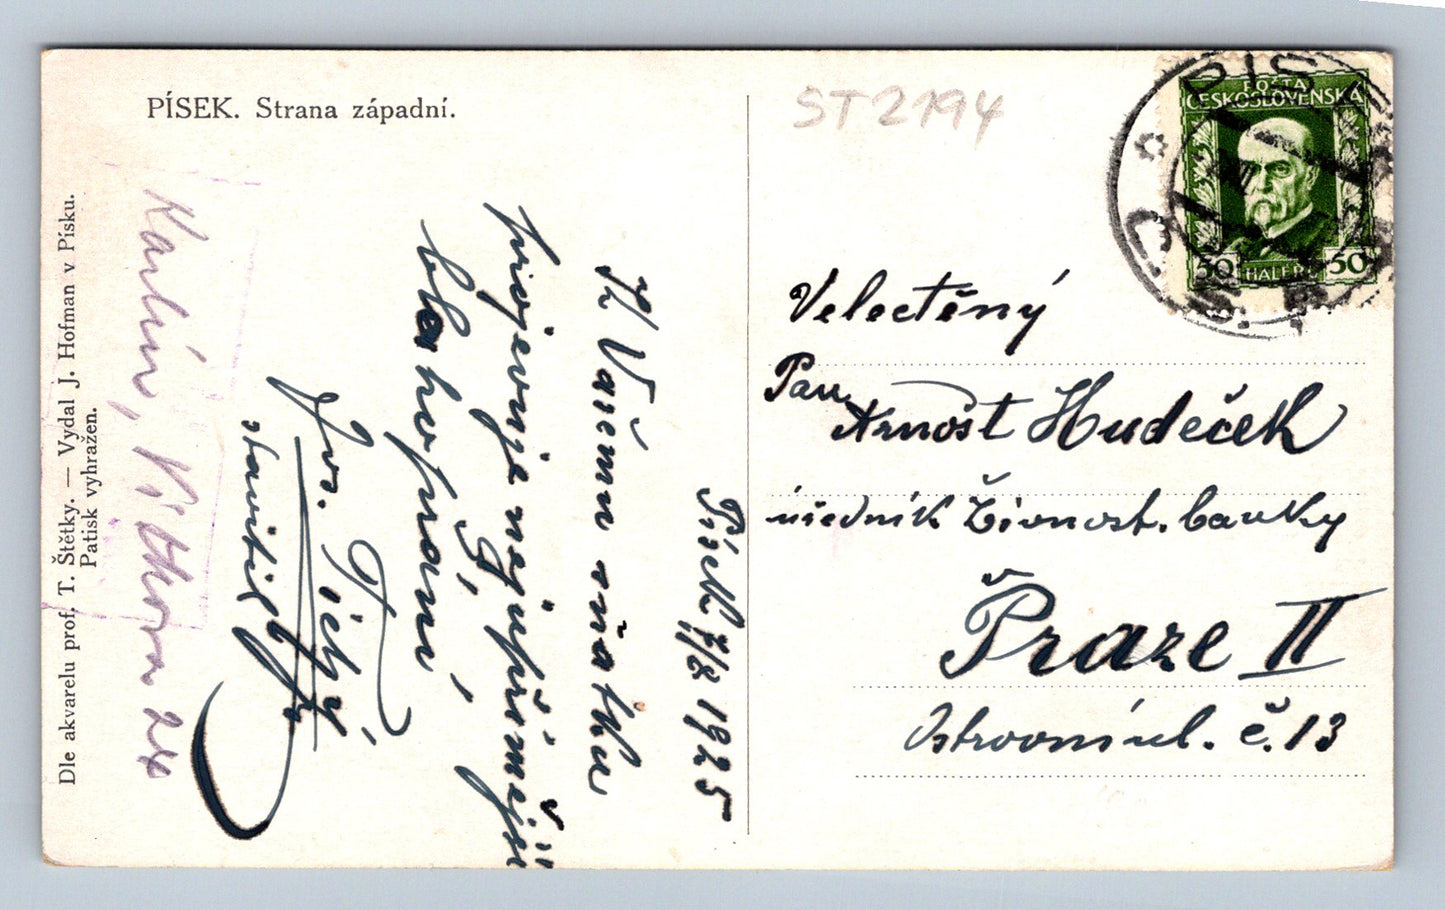 PÍSEK. Strana západní.
Dle akvarelu prof. T. Štětky. — Vydal J. Hofman v Písku.
Patisk vyhražen.
ST2194
POŠTA
ČESKOSLOVENSKÁ
50 HALÉŘŮ 50
Písek 7/8 1925
K Vašemu sňatku
projevuje nejupřímější
blahopřání,
Jos. Tichý
stavitel
Karlín,
24
Velectěný
Pan
Arnošt Hudeček
úředník Živnost. banky
Praze II
Ostrovní ul. č. 13